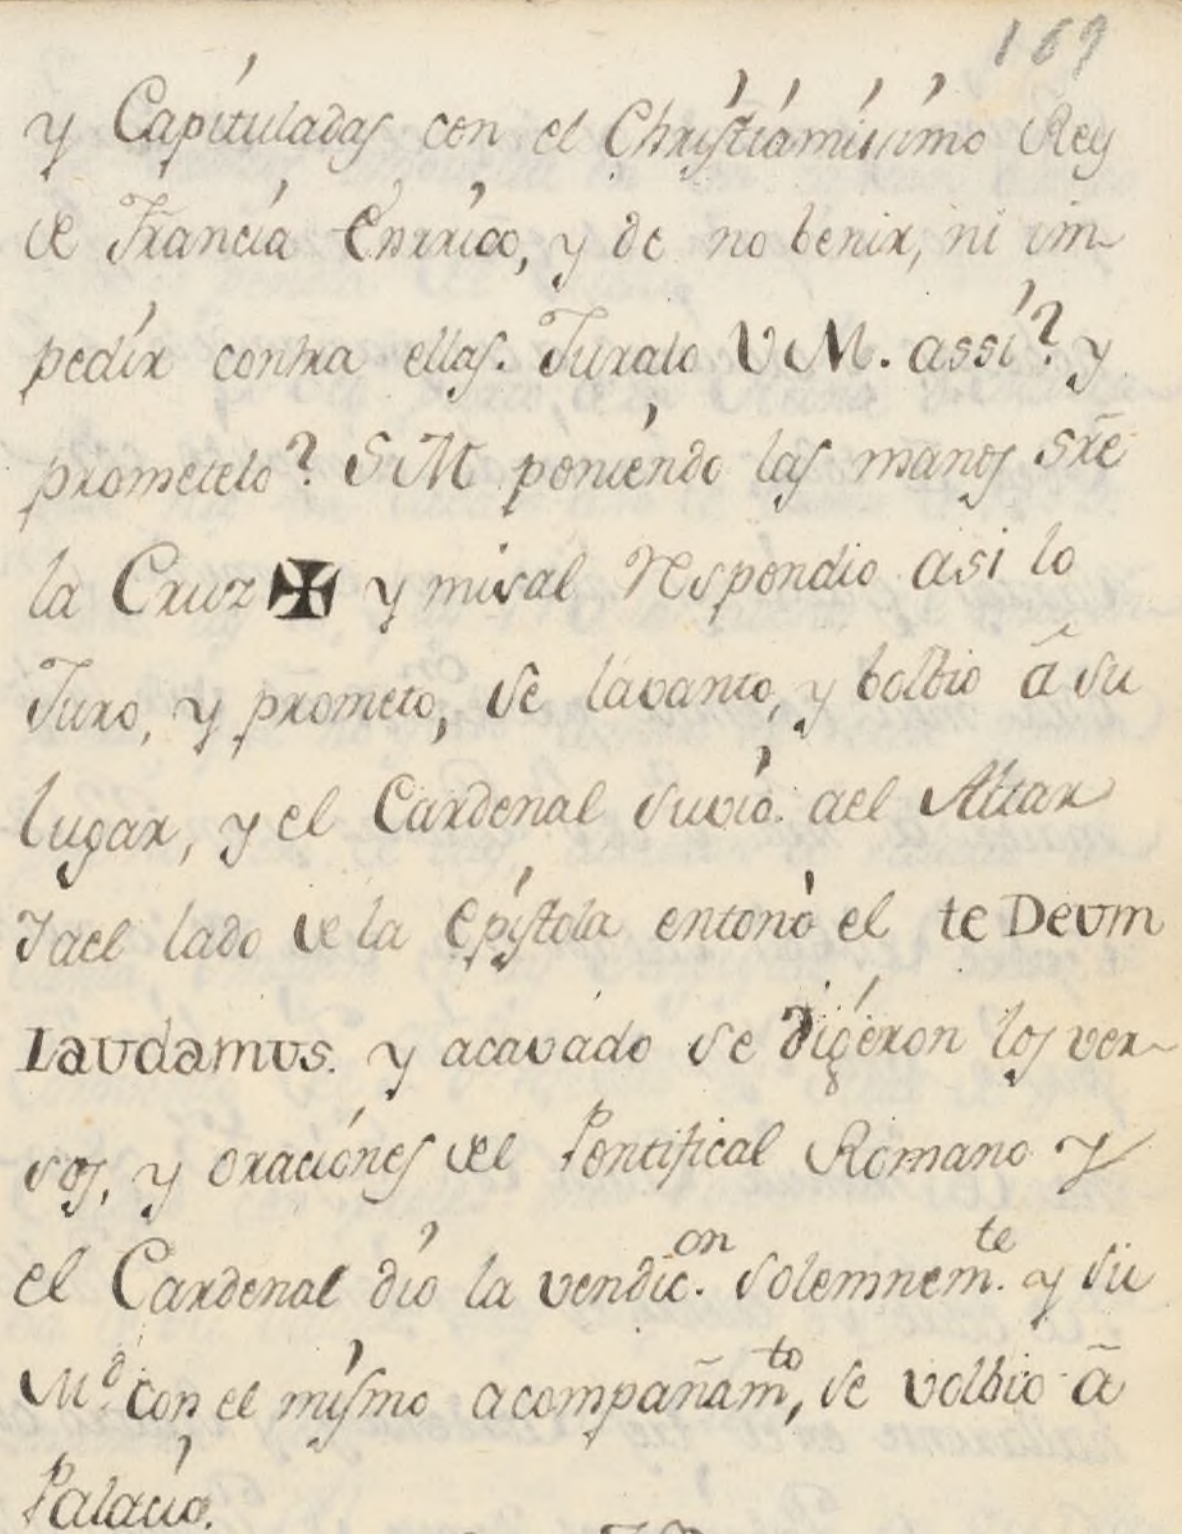 169
y Capítuladas con el Chrístíamísímo Rey
de Francía Enrríco, y de no benir, ni im-
pedír contra ellas. Juralo V M. assí? y
prometelo? S M poníendo las manos sr̃e
la Cruz ✠ y misal respondio asi lo
Juro, y prometo, se lavanto, y bolbio ã su
lugar, y el Cardenal suvió ael Altar
Y ael lado de la Epístola entonó el te Deum
Laudamus. y acavádo se digéron los ver-
sos, y oraciónes del Pontifical Romano y
el Cardenal dío la vendic.on solemnem.te y su
M.d con el mísmo acompañam.to, se volbio ã
Palacío.